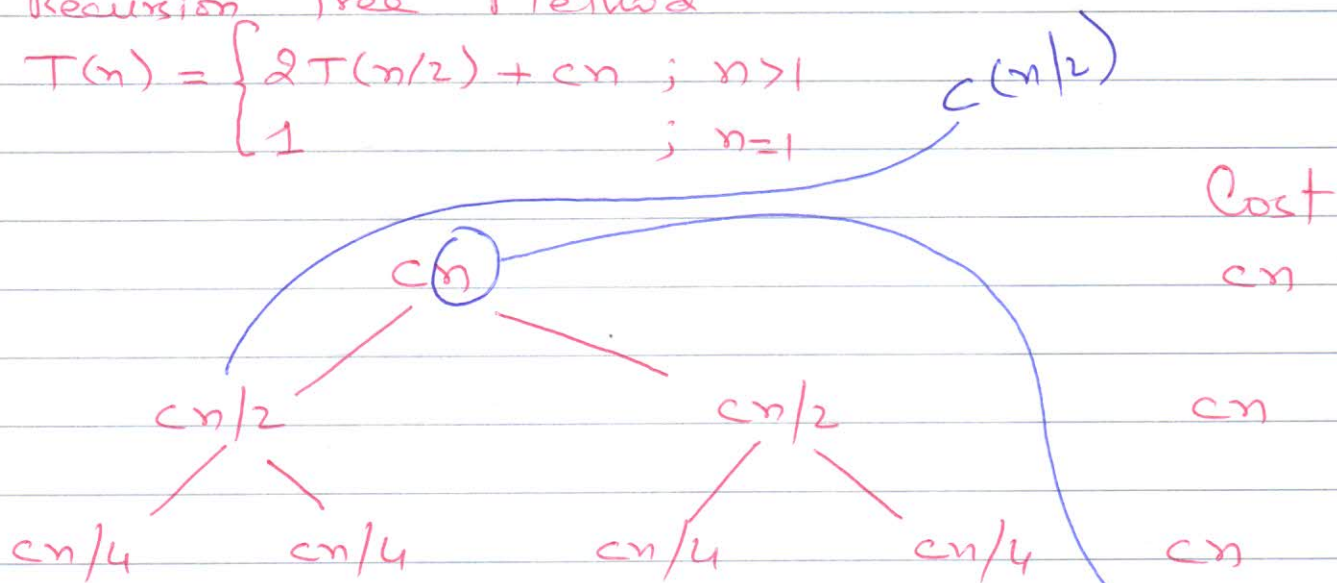 Recursion Tree Method
T(n) = { 2T(n/2) + cn ; n>1
1 ; n=1
c(n/2)
Cost
cn cn
cn/2 cn/2 cn
cn/4 cn/4 cn/4 cn/4 cn